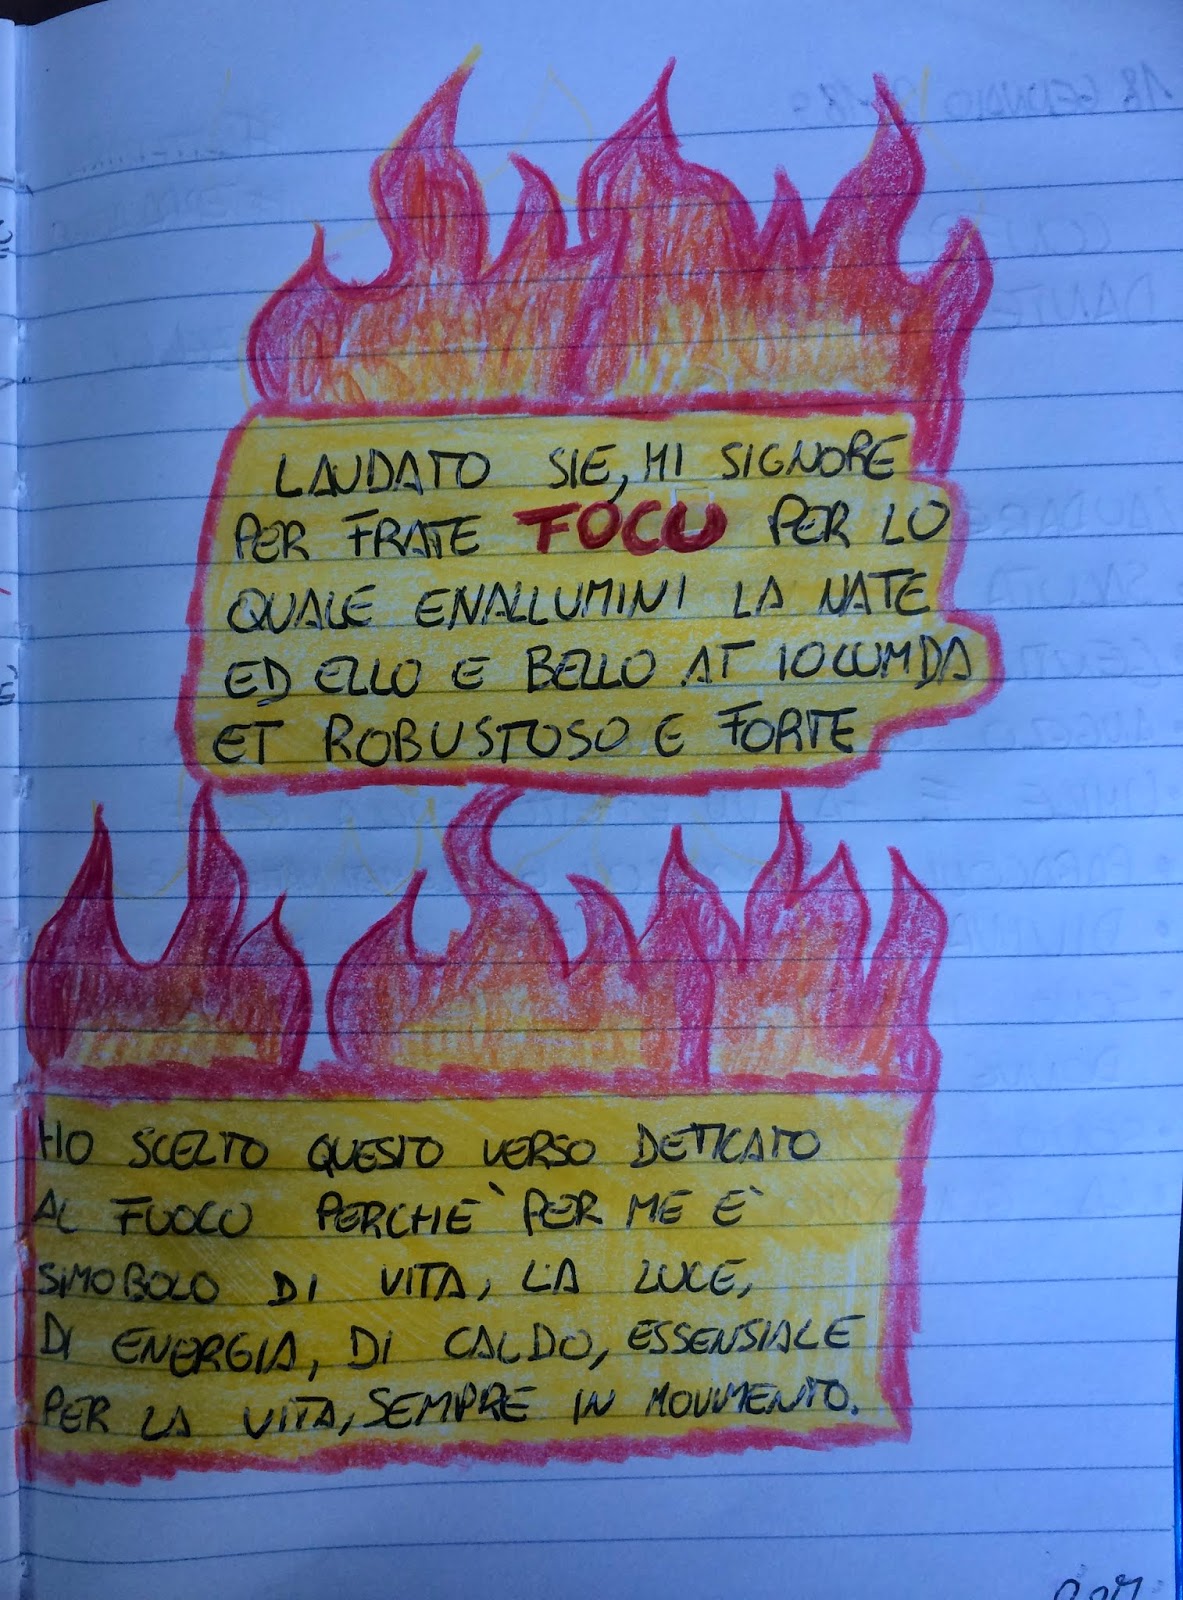 LAUDATO SIE, MI SIGNORE
PER FRATE FOCU PER LO
QUALE ENALLUMINI LA NATE
ED ELLO E BELLO AT IOCUMDA
ET ROBUSTOSO E FORTE
HO SCELTO QUESTO VERSO DETICATO
AL FUOCO PERCHÈ PER ME È
SIMOBOLO DI VITA, LA LUCE,
DI ENERGIA, DI CALDO, ESSENSIALE
PER LA VITA, SEMPRE IN MOVIMENTO.